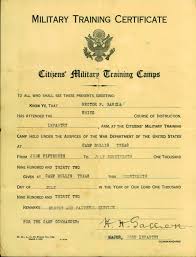 MILITARY TRAINING CERTIFICATE
Citizens' Military Training Camps
TO ALL WHO SHALL SEE THESE PRESENTS GREETING:
KNOW YE, THAT HECTOR P. GARCIA
HAS ATTENDED THE THIRD COURSE OF INSTRUCTION,
INFANTRY ARM, AT THE CITIZENS' MILITARY TRAINING
CAMP HELD UNDER THE AUSPICES OF THE WAR DEPARTMENT OF THE UNITED STATES
AT CAMP BULLIS TEXAS
FROM JUNE FIFTEENTH TO JULY FOURTEENTH ONE THOUSAND
NINE HUNDRED AND THIRTY TWO
GIVEN AT CAMP BULLIS TEXAS THIS FOURTEENTH
DAY OF JULY IN THE YEAR OF OUR LORD ONE THOUSAND
NINE HUNDRED AND THIRTY TWO
REMARKS: HONEST AND FAITHFUL SERVICE
FOR THE CAMP COMMANDER:
MAJOR, INFANTRY